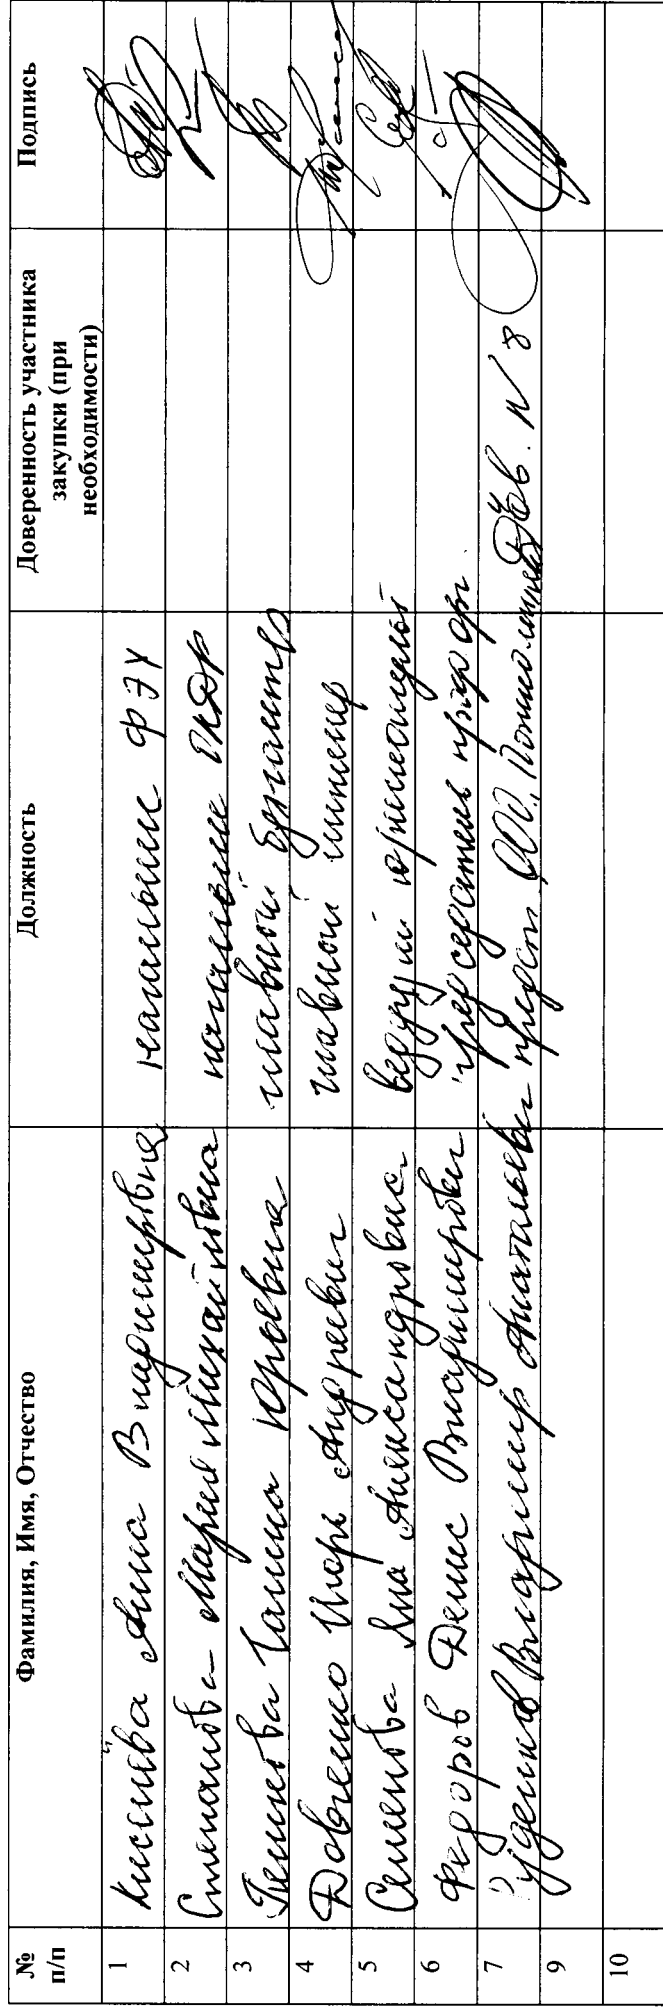 № п/п Фамилия, Имя, Отчество Должность Доверенность участника закупки (при необходимости) Подпись
1 Киселёва Анна Владимировна начальник ФЭУ
2 Степанова Мария Михайловна начальник
3 Галина Юрьевна главный бухгалтер
4 Довженко Игорь Андреевич главный инженер
5 Семенова Яна Александровна ведущий юрисконсульт
6 Федоров Денис Владимирович председатель проф орг.
7 Руденков Владимир Анатольевич предст ООО, Дов. N 8
9
10